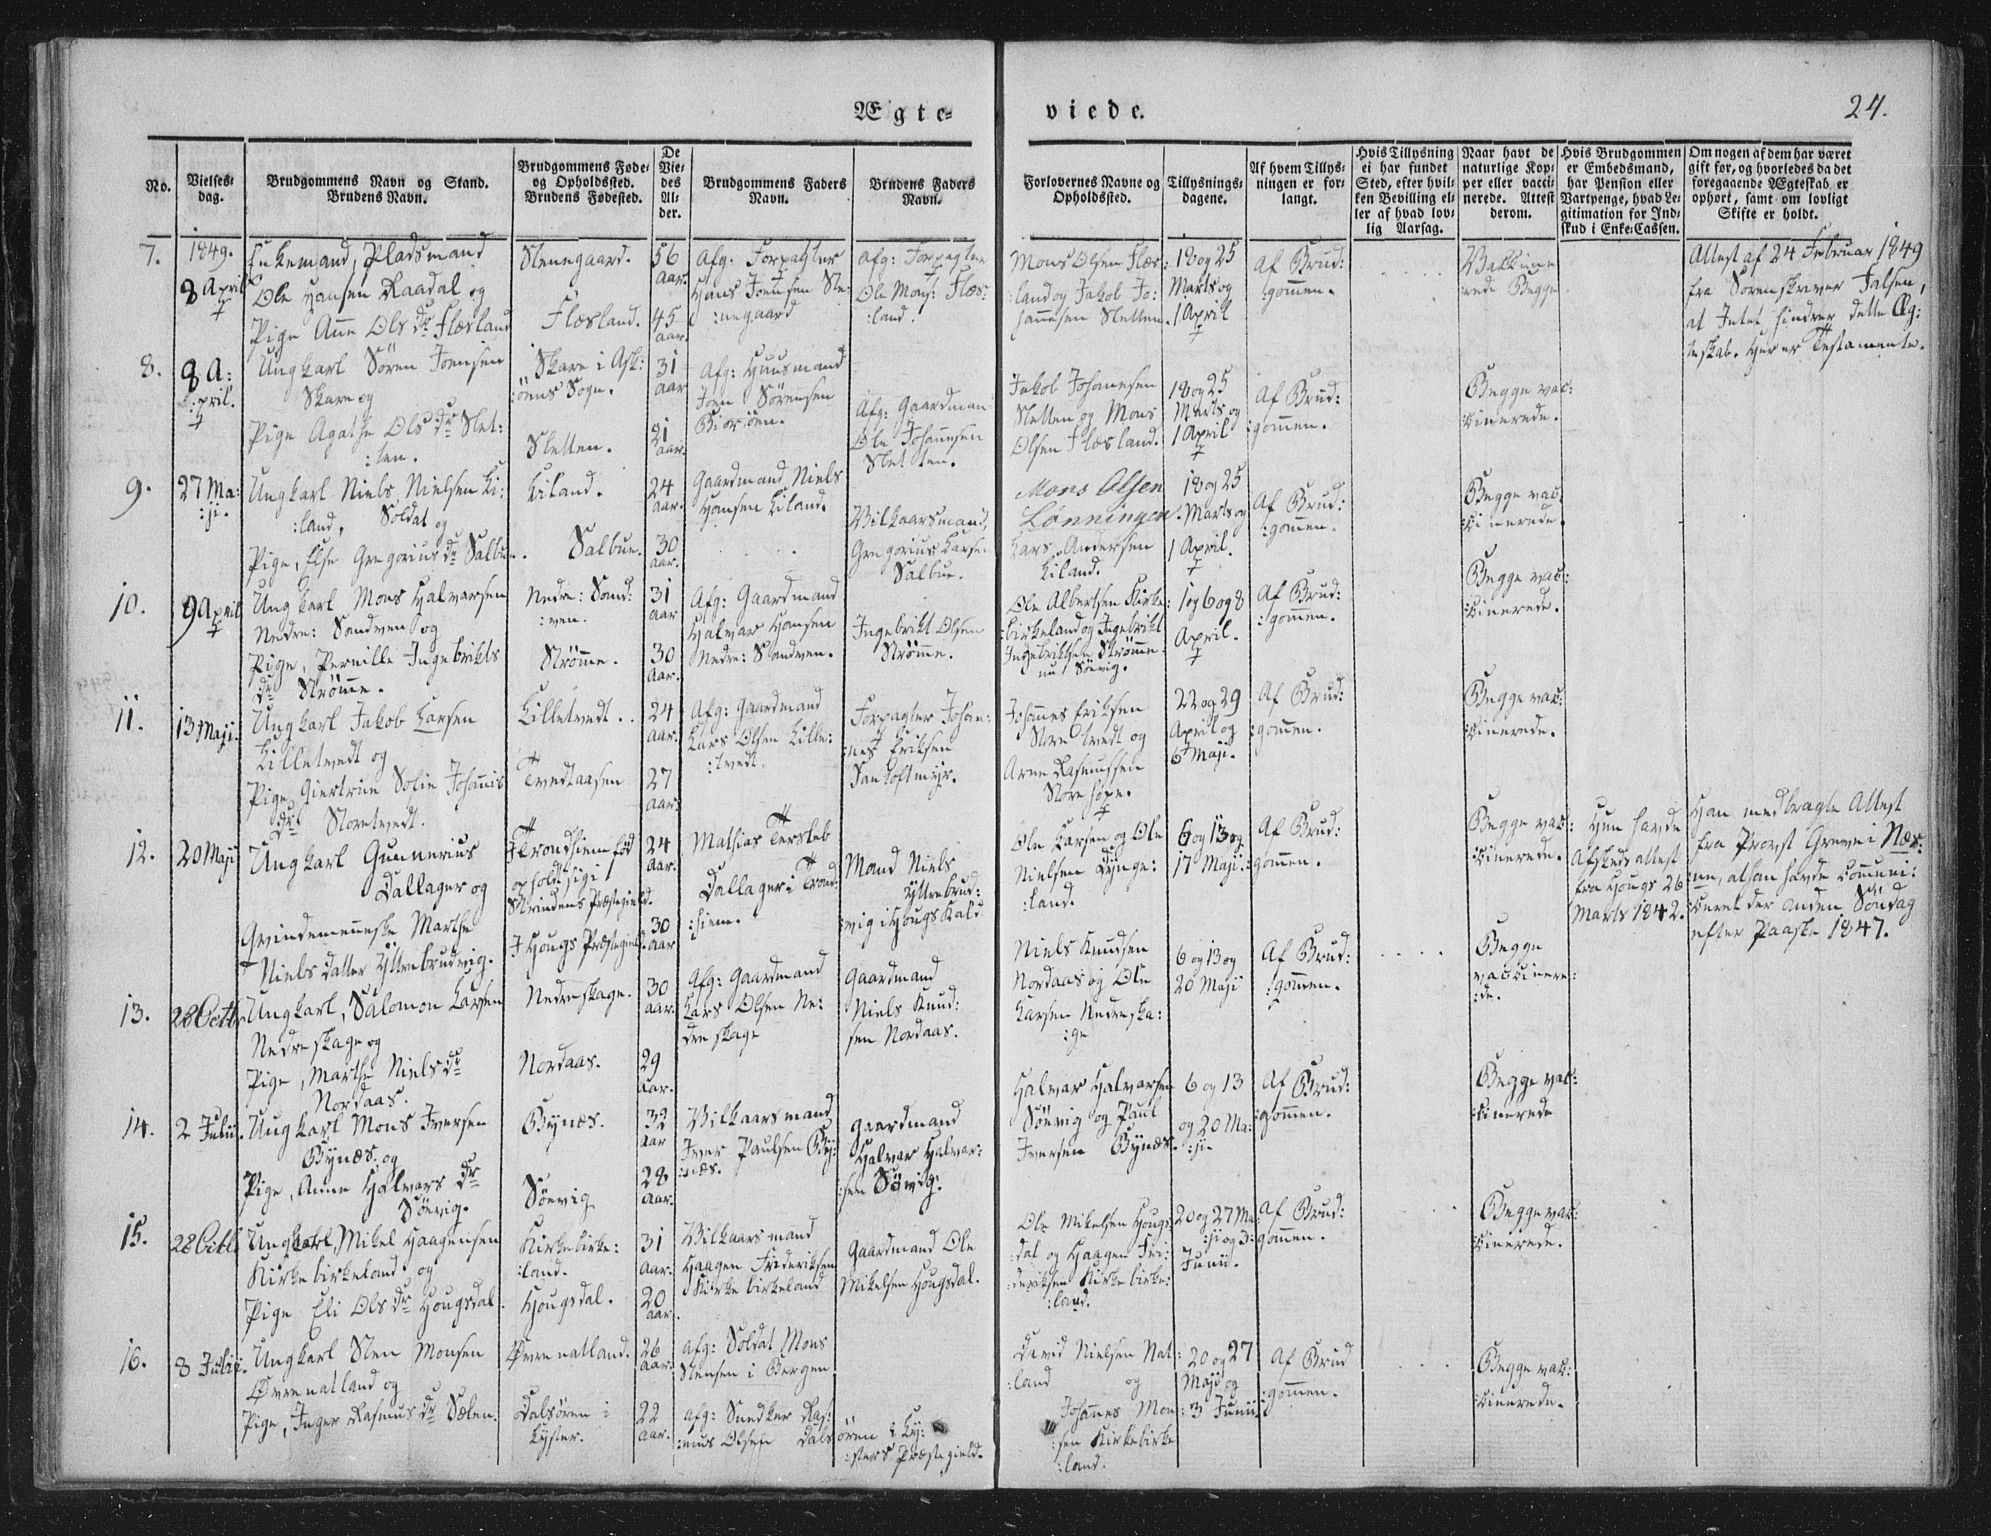 Ægte-
viede.
24.
No.
Vielses-
dag.
Brudgommens Navn og Stand.
Brudens Navn.
Brudgommens Føde-
og Opholdssted.
Brudens Fødested.
De
Vie-
des
Al-
der.
Brudgommens Faders
Navn.
Brudens Faders
Navn.
Forlovernes Navne og
Opholdssted.
Tillysnings-
dagene.
Af hvem Tillys-
ningen er for-
langt.
Hvis Tillysning
ei har fundet
Sted, efter hvil-
ken Bevilling el-
ler af hvad lov-
lig Aarsag.
Naar havt de
naturlige Kop-
per eller vacci-
nerede. Attest
derom.
Hvis Brudgommen
er Embedsmand,
har Pension eller
Vartpenge, hvad Le-
gitimation for Ind-
skud i Enke-Cassen.
Om nogen af dem har været
gift før, og hvorledes da det
foregaaende Ægteskab er
ophørt, samt om lovligt
Skifte er holdt.
7.
1849.
8 April
Enkemand, Pladsmand
Ole Hansen Raadal og
Pige Anne Ols dr Flæsland
Stenegaard.
Flæsland.
56
Aar.
45
Aar.
Afg. Forpagter
Hans Joensen Ste-
:negaard
Afg: Forpagter
Ole Mons: Flæs:
:land.
Mons Olsen Flæs:
:land og Jakob Jo:
hannesen Sletten.
18 og 25
Marts og
1 April
Af Brud:
:gommen.
Vakkine
:rede Begge
Attest af 24 Februar 1849
fra Sorenskriver Falsen,
at Intet hindrer dette Æg:
teskab. Her er Testamente.
8.
8 A:
:pril.
Ungkarl Sören Joensen
Skare og
Pige Agathe Ols dr Slet:
:ten.
Skare i Ask:
:öens Sogn.
Sletten.
31
Aar
21
Aar.
Afg: Huusmand
Joen Sörensen
Afg: Gaardman
Ole Johannesen
Sletten.
Jakob Johanesen
Sletten og Mons
Olsen Flæsland.
18 og 25
Marts og
1 April
Af Brud:
gommen.
Begge vac:
:cinerede.
9.
27 Ma:
:ji.
Ungkarl Niels Nielsen Li:
:land, Soldat og
Pige, Else Gregorius dr Salbue.
Liland.
Salbue.
24
Aar.
30
Aar.
Gaardmand Niels
Hansen Liland.
Vilkaarsmand,
Gregorius Larsen
Salbue.
Mons Olsen
Lønningen.
Lars Andersen
Liland.
18 og 25
Marts og
1 April.
Af Brud:
:gommen.
Begge vac
:cinerede.
10.
9 April
Ungkarl Mons Halvarsen
Nedre: Sandven og
Pige, Pernille Ingebrikts
dr Strömme.
Nedre: Sand:
:ven.
Strömme.
31
Aar
30
Aar.
Afg: Gaardmand
Halvar Hansen
Nedre: Sandven.
Ingebrikt Olsen
Strömme.
Ole Albertsen Kirke:
:birkeland og Ingebrikt
Ingebriktsen Strömme
nu Söevig.
1 og 6 og 8
April.
Af Brud:
:gommen.
Begge vac:
:cinerede.
11.
13 Maji.
Ungkarl Jakob Larsen
Lilletvedt og
Pige Giertrue Solie Johannis
dr Storetvedt.
Lilletvedt.
Tvedtaasen
24
Aar.
27
Aar.
Afg: Gaardmand
Lars Olsen Lille:
:tvedt.
Forpagter Johan:
:nes Eriksen
Johannes Eriksen
Storetvedt og
Arne Rasmussen
Store höpe.
22 og 29
April og
6 Maji.
Af Brud:
:gommen.
Begge vac:
:cinerede.
12.
20 Maji
Ungkarl Gunnerius
Dallager og
Qvindemenneske Marthe
Niels datter Yttrebrudvig.
Trondhiem född
opholdt sig i
Strindens Præstegield.
I Hougs Præstegield.
24
Aar.
30
Aar
Mathias Tersleb
Dallager i Trond:
:hiem.
Mand Niels
Yttrebrud:
vig i Hougs Kald
Ole Larsen og Ole
Nielsen Lynge:
:land.
6 og 13 og
17 Maji.
Af Brud:
:gommen.
Begge vac:
:cinerede.
Hun havde
Afskeds attest
fra Hougs 26
Marts 1842.
Han medbragte Attest
fra Provst Greve i Næs:
:ne, at han havde Communi:
:ceret der anden Söndag
efter Paaske 1847.
13.
28 Octbr
Ungkarl, Salomon Larsen
Nedreskage og
Pige, Marthe Niels dr
Nordaas.
Nedreskage.
Nordaas.
30
Aar.
29
Aar.
Afg: Gaardmand
Lars Olsen Ne:
dreskage
Gaardmand
Niels Knud:
sen Nordaas.
Niels Knudsen
Nordaas og Ole
Larsen Nedreska:
:ge
6 og 13 og
20 Maji
Af Brud:
:gommen.
Begge
vaccinere:
:de.
14.
2 Julii.
Ungkarl Mons Iversen
Bynæs. og
Pige, Anne Halvars dr
Söevig.
Bynæs.
Söevig
32
Aar
28
Aar.
Vilkaarsmand
Iver Paulsen By:
:næs.
Gaardmand
Halvar Halvar:
:sen Søvig.
Halvar Halvarsen
Söevig og Paul
Iversen Bynæs.
6 og 13
og 20 Ma:
:ji
Af Brud:
:gommen.
Begge vac:
:cinerede
15.
28 Octb.
Ungkarl, Mikel Haagensen
Kirkebirkeland og
Pige Eli Ols dr Hougsdal.
Kirkebirke:
:land.
Hougsdal.
31
Aar.
20
Aar.
Vilkaarsmand
Haagen Frideriksen
Kirkebirkeland
Gaardmand Ole
Mikelsen Hougsdal.
Ole Mikelsen Hougs:
:dal og Haagen Fri:
:deriksen Kirkebirke:
:land.
20 og 27 Ma:
:ji og 3:
Junii.
Af Brud:
gommen.
Begge vac:
:cinerede.
16.
8 Julii.
Ungkarl Sten Monsen
Øvrenatland og
Pige, Inger Rasmus dr Sælen.
Øvrenatland.
Dalsören i
Lyster.
26
Aar.
22
Aar.
Afg: Soldat Mons
Stensen i Bergen
Afg: Snedker Ras:
:mus Olsen Dals
ören i Ly:
:sters Præstegield.
David Nielsen Nat:
:land og
Johannes Mon
:sen Kirkebirke
:land.
20 og 27
Maji og
3 Junii
Af Brud
:gommen.
Begge vac:
:cinerede.